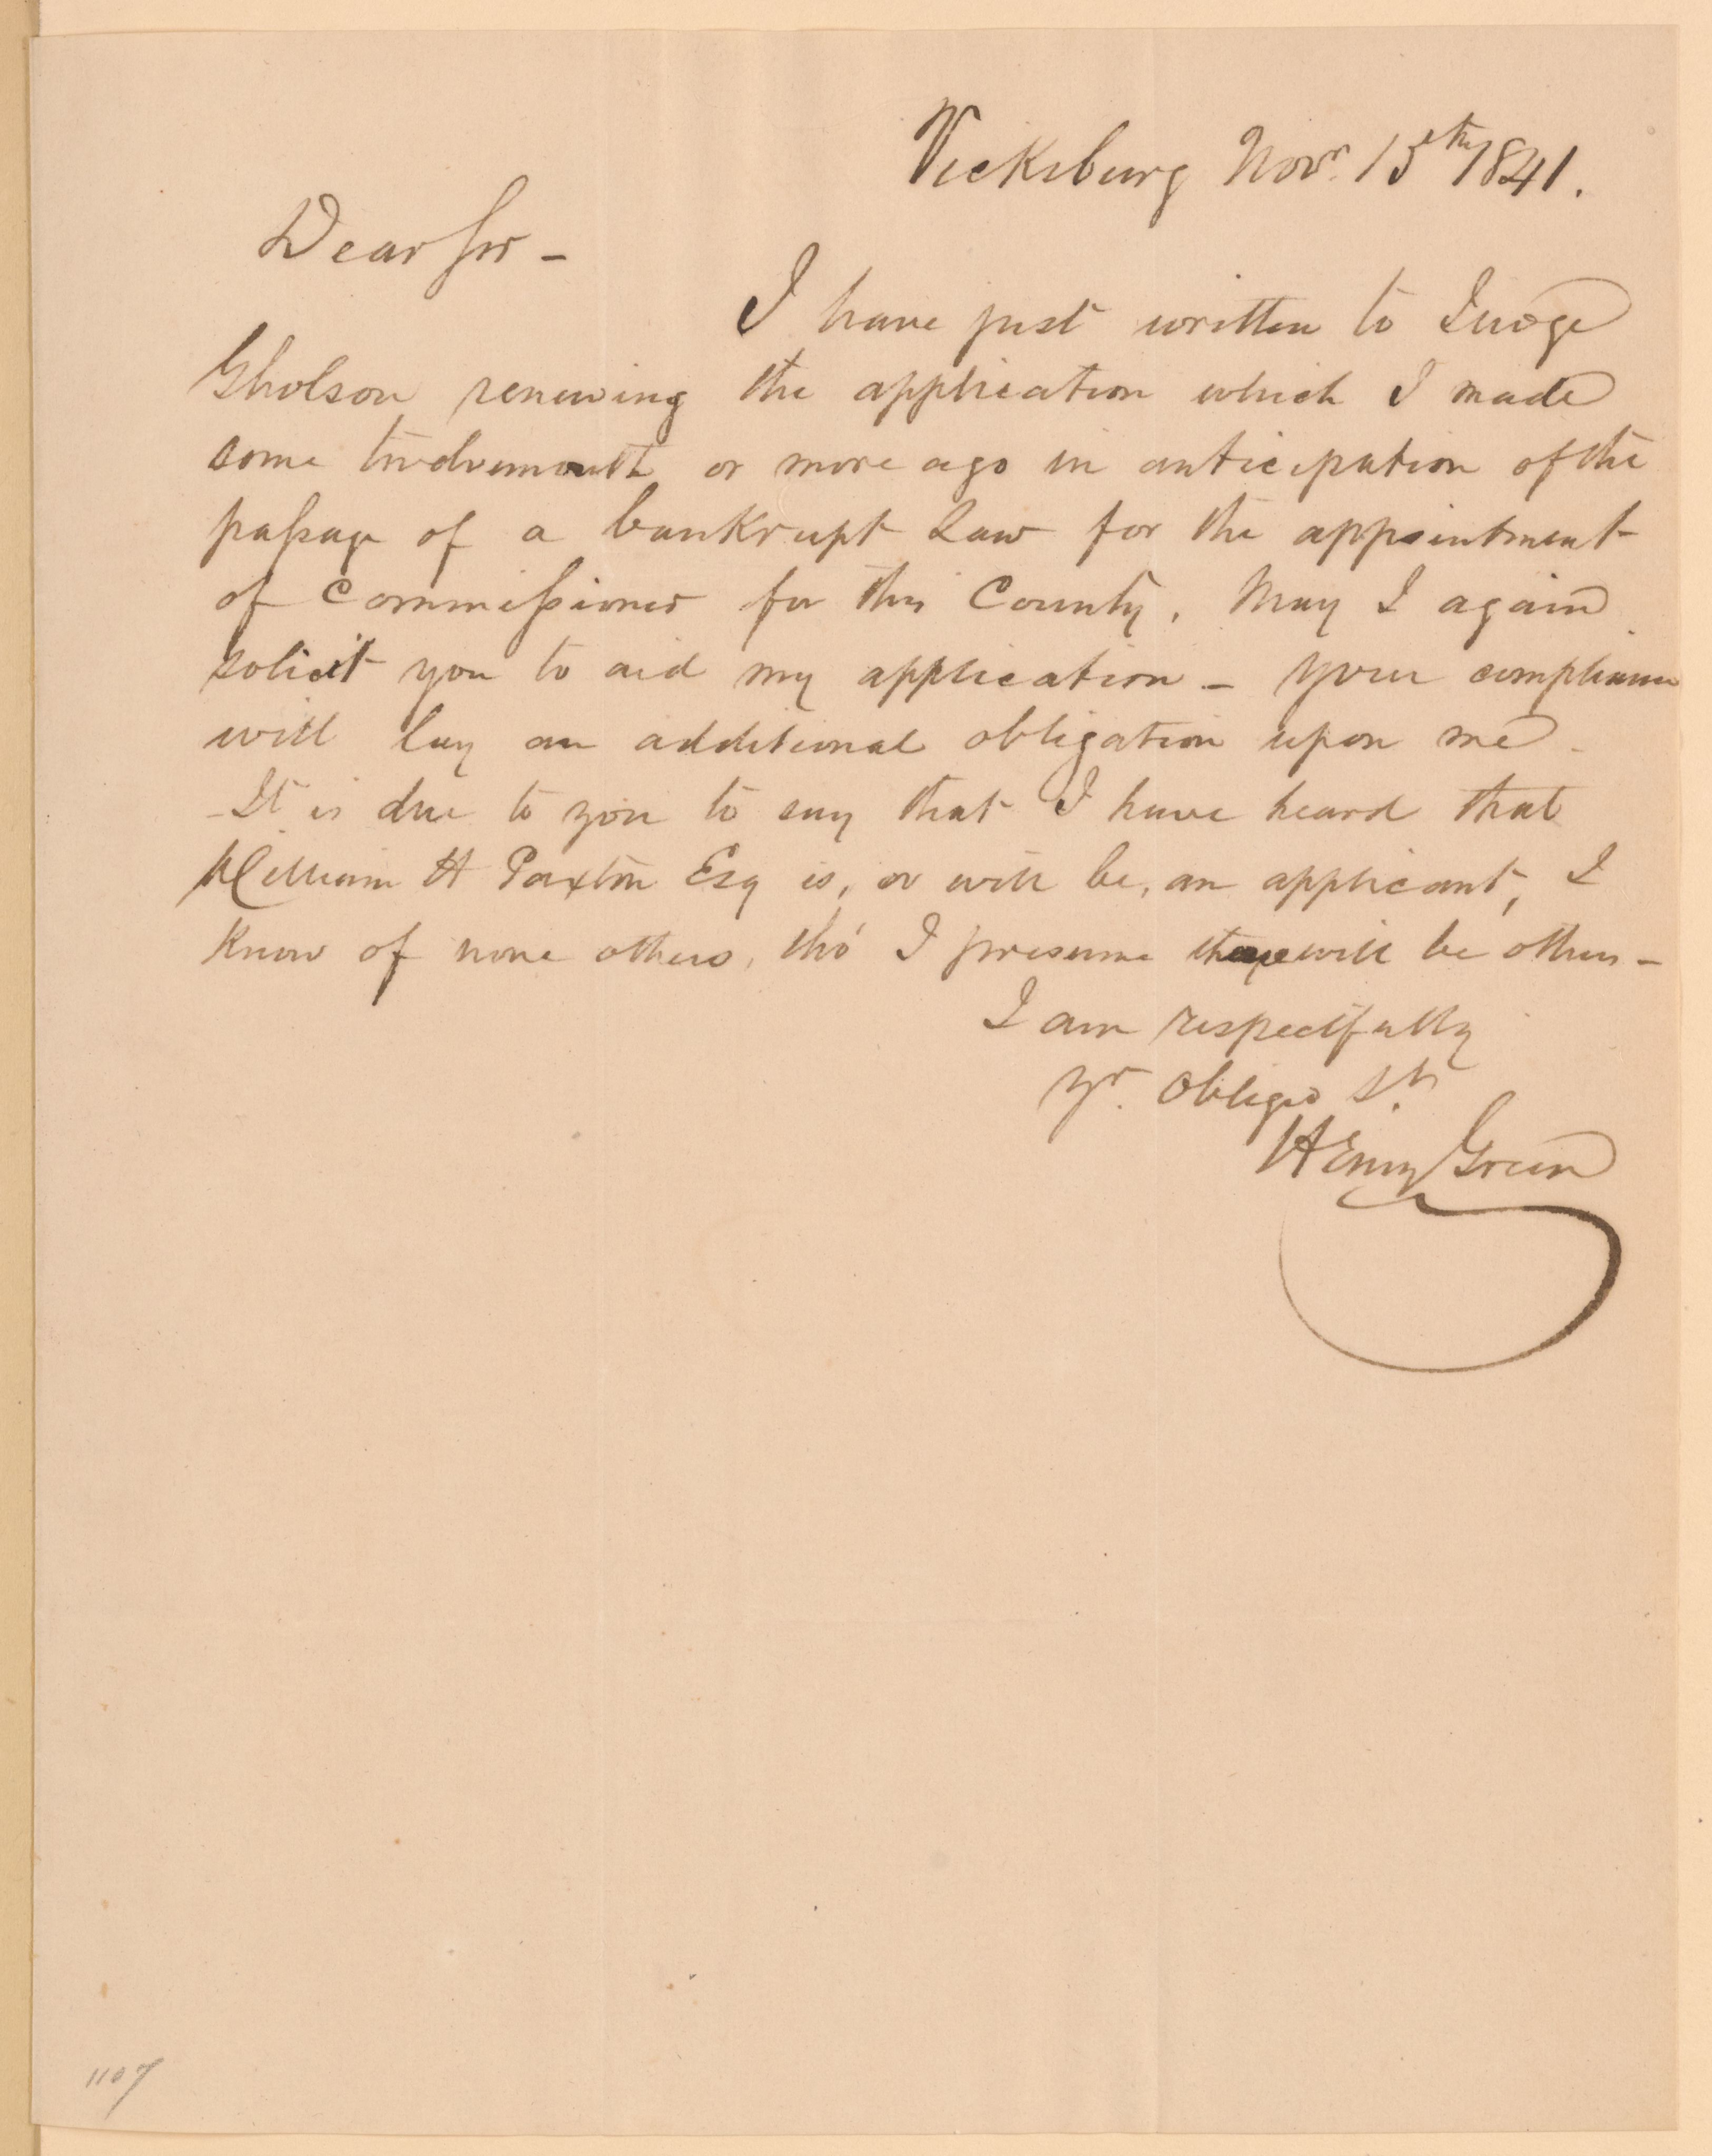 Vicksburg Novr. 15th 1841.
Dear Sir -
I have just written to Judge
Gholson renewing the application which I made
some twelvemonth or more ago in anticipation of the
passage of a bankrupt Law for the appointment
of Commissioner for this County. May I again
solicit you to aid my application - Your compliance
will lay an additional obligation upon me -
- It is due to you to say that I have heard that
William H Paxton Esq is, or will be, an applicant, I
know of none others, tho' I presume there will be others -
I am respectfully
Yr. Obliged St.
Henry Green
1107